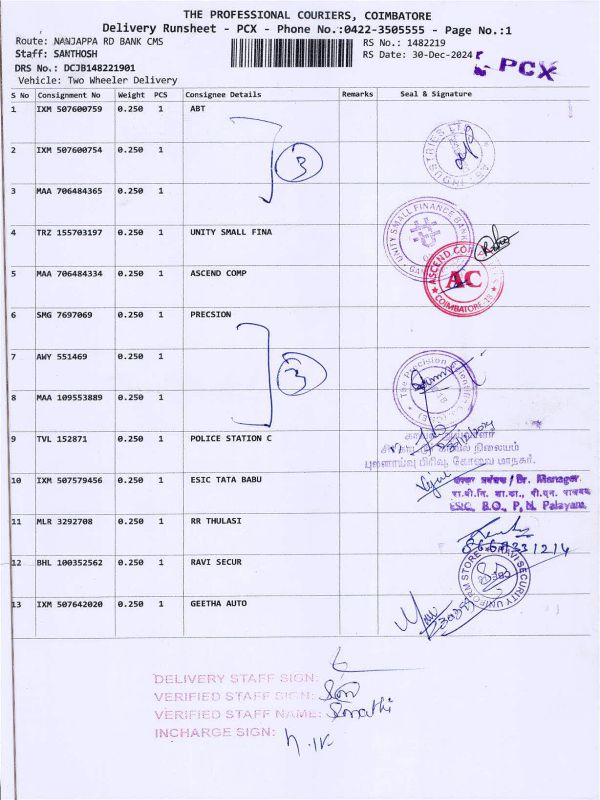 THE PROFESSIONAL COURIERS, COIMBATORE
Delivery Runsheet - PCX - Phone No.:0422-3505555 - Page No.:1
Route: NANJAPPA RD BANK CMS
RS No.: 1482219
Staff: SANTHOSH
RS Date: 30-Dec-2024
PCX
DRS No.: DCJB148221901
Vehicle: Two Wheeler Delivery
S No Consignment No Weight PCS Consignee Details Remarks Seal & Signature
1 IXM 507600759 0.250 1 ABT
2 IXM 507600754 0.250 1
3
3 MAA 706484365 0.250 1
4 TRZ 155703197 0.250 1 UNITY SMALL FINA
UNITY SMALL FINANCE BANK
5 MAA 706484334 0.250 1 ASCEND COMP
ASCEND
AC
COIMBATORE-18
6 SMG 7697069 0.250 1 PRECSION
7 AWY 551469 0.250 1
3
The Precision Scientific
8 MAA 109553889 0.250 1
9 TVL 152871 0.250 1 POLICE STATION C
காவல் ஆய்வாளர்
காவல் நிலையம்
புலனாய்வு பிரிவு, கோவை மாநகர்.
10 IXM 507579456 0.250 1 ESIC TATA BABU
शाखा प्रबंधक / Br. Manager
ESIC, B.O., P. N. Palayam
11 MLR 3292708 0.250 1 RR THULASI
12 BHL 100352562 0.250 1 RAVI SECUR
RAVI SECURITY UNIFORM STORE
CBE
13 IXM 507642020 0.250 1 GEETHA AUTO
DELIVERY STAFF SIGN:
VERIFIED STAFF SIGN:
VERIFIED STAFF NAME:
INCHARGE SIGN: